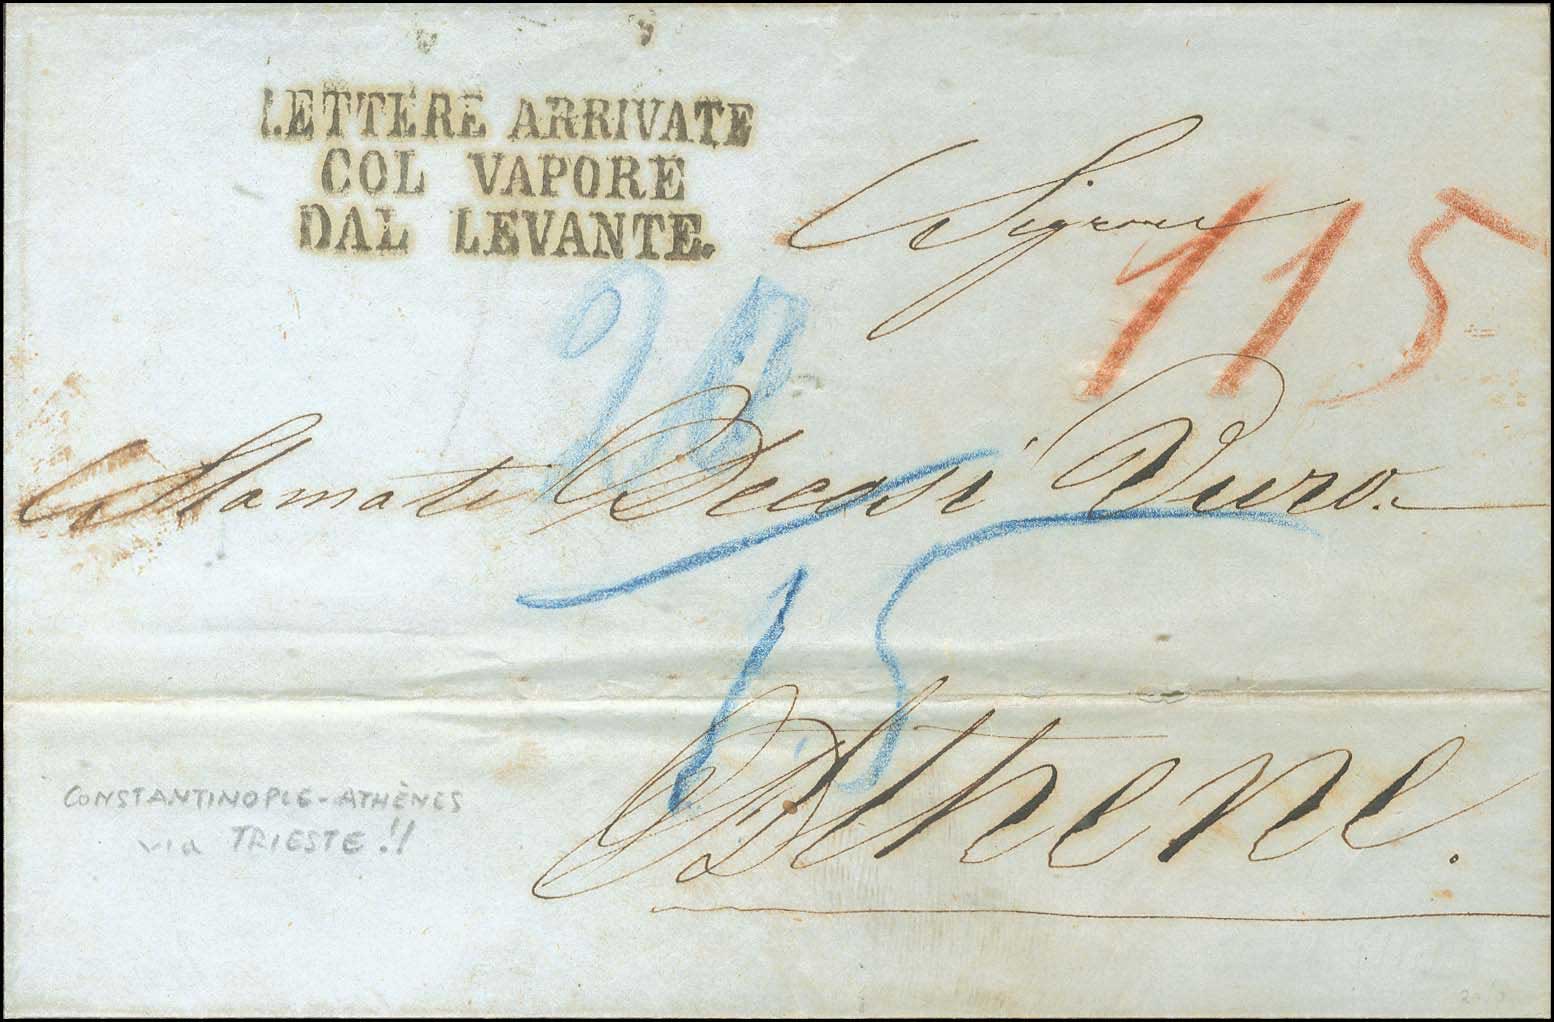 LETTERE ARRIVATE
COL VAPORE
DAL LEVANTE.
Signore
115
20
Stamati Decasi Vuro.
15
Athene.
CONSTANTINOPLE-ATHÈNES
via TRIESTE !!